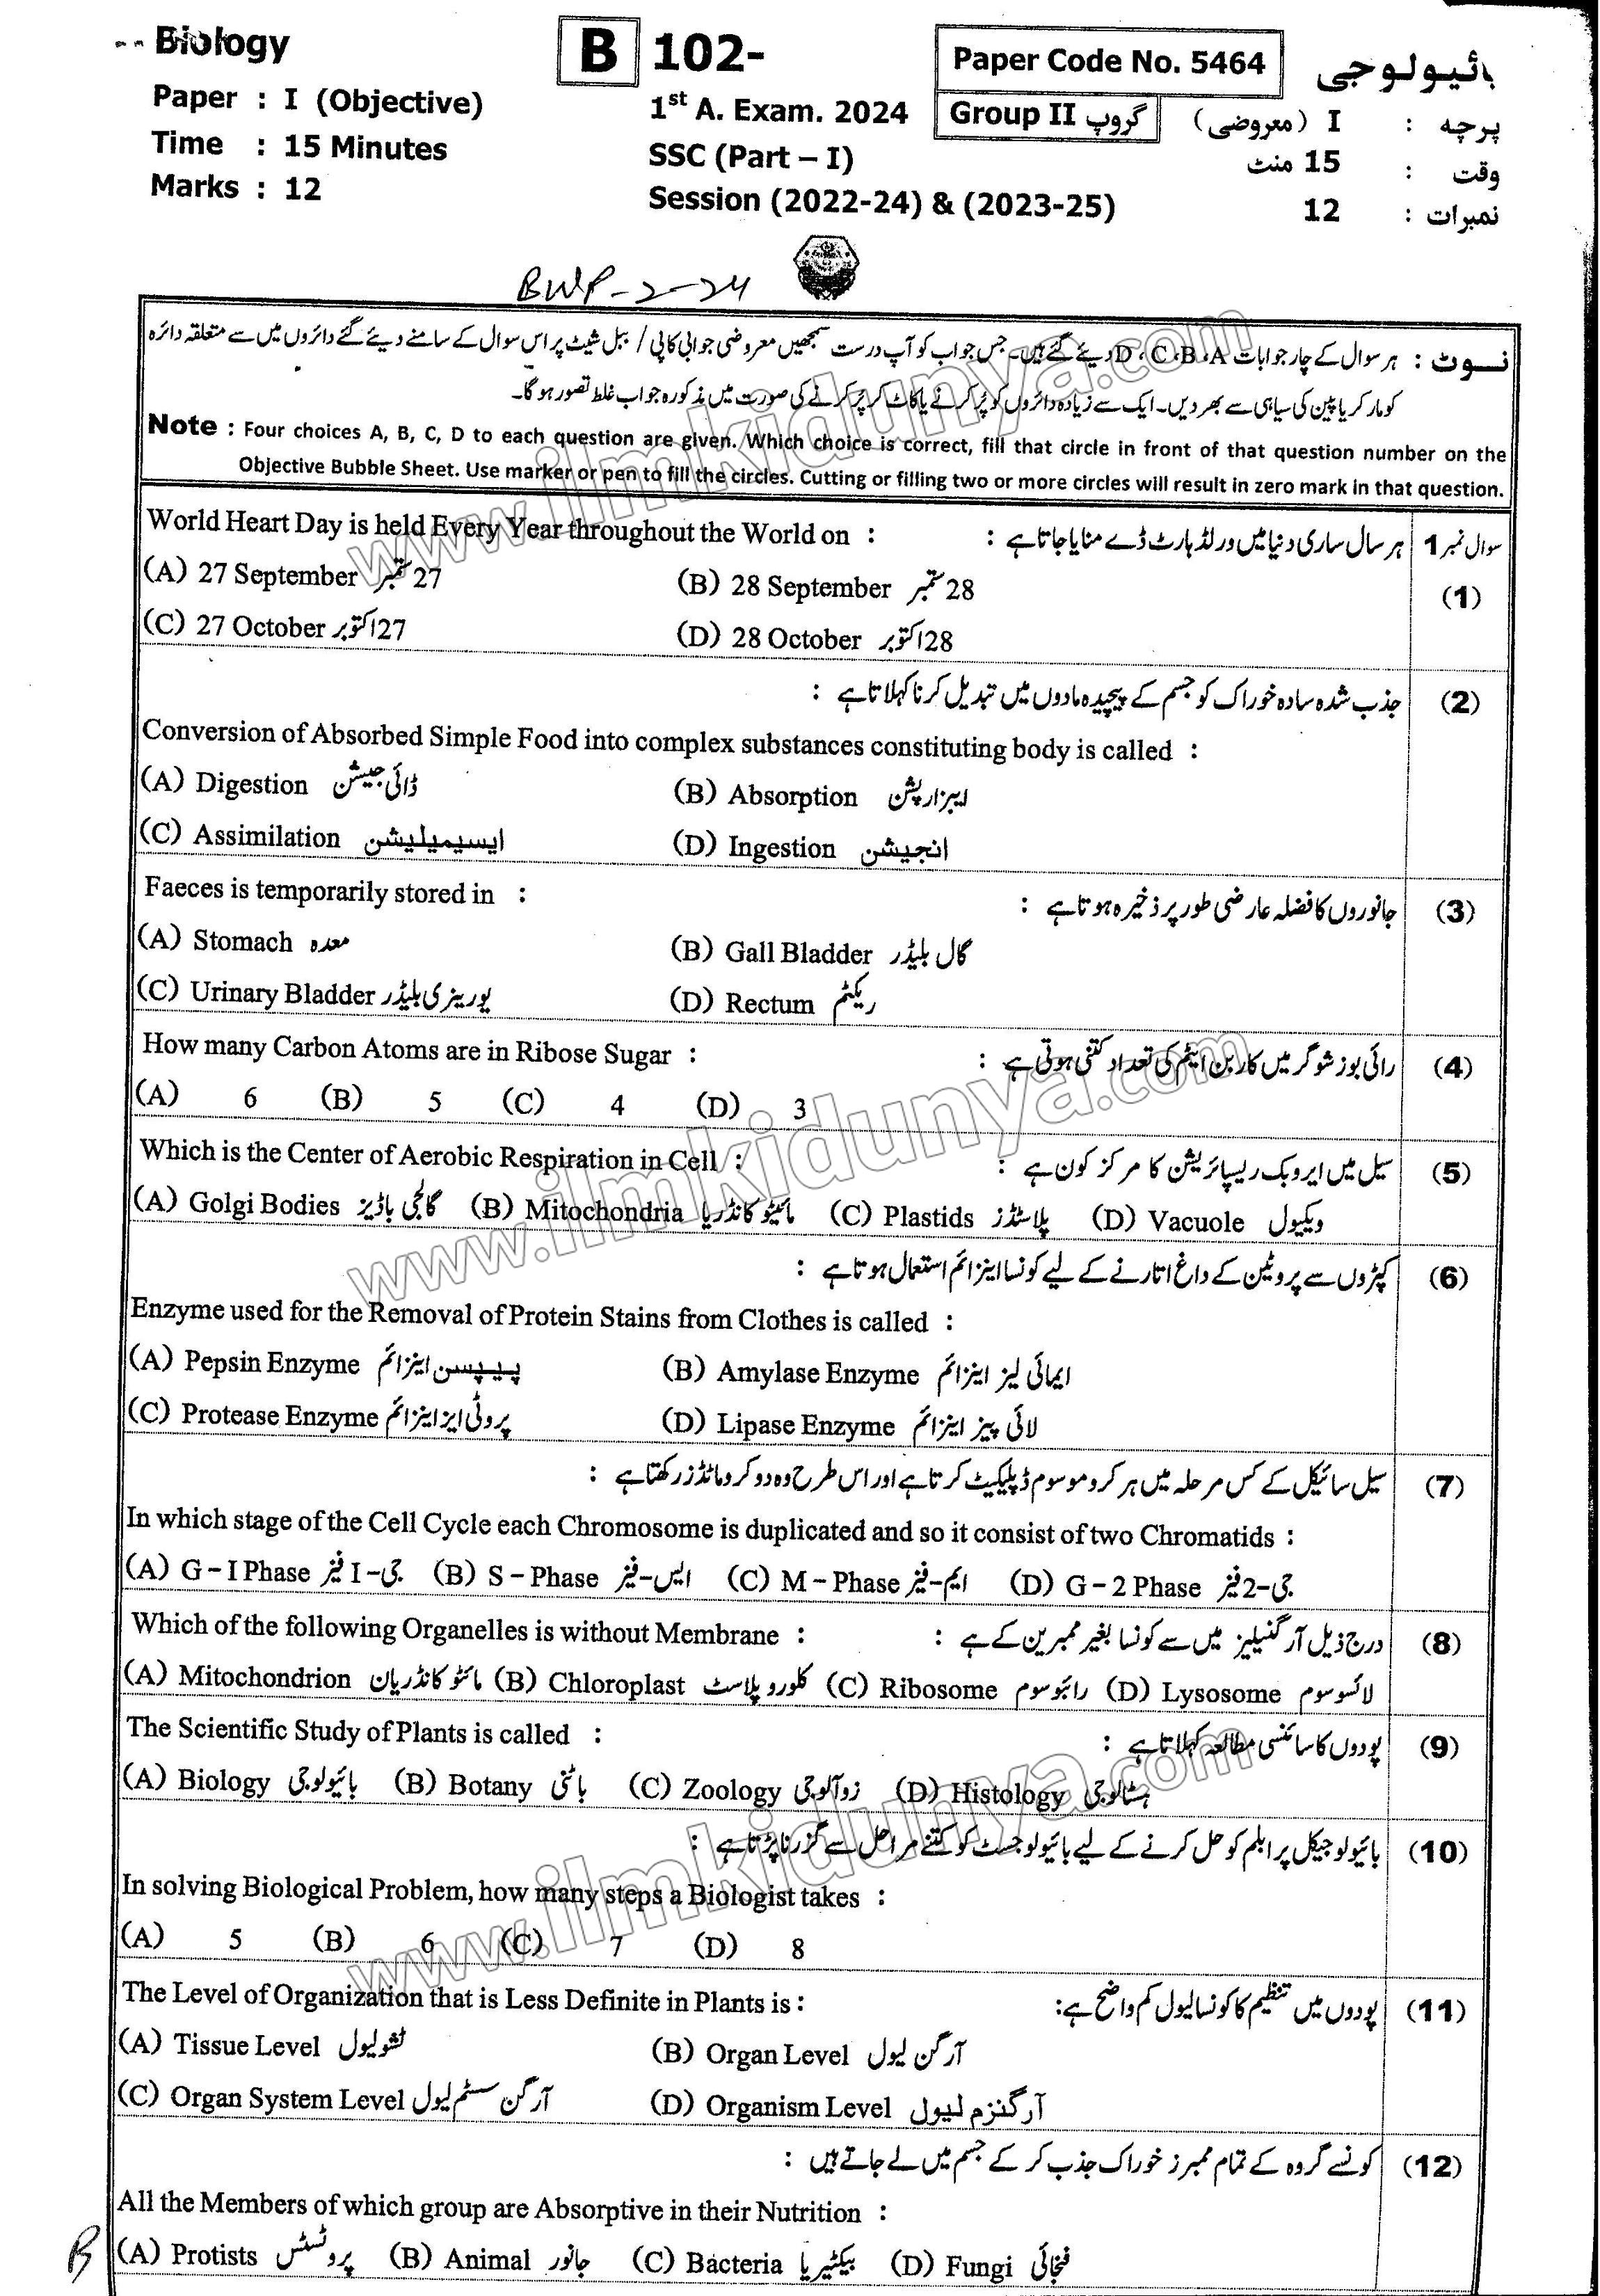 Biology
B 102-
Paper Code No. 5464
بائیولوجی
Paper : I (Objective)
1st A. Exam. 2024
Group II گروپ
پرچہ : I (معروضی)
Time : 15 Minutes
SSC (Part – I)
وقت : 15 منٹ
Marks : 12
Session (2022-24) & (2023-25)
نمبرات : 12
BWP-2-24
نوٹ : ہر سوال کے چار جوابات D ، C ، B ، A دیئے گئے ہیں۔ جس جواب کو آپ درست سمجھیں معروضی جوابی کاپی / ببل شیٹ پر اس سوال کے سامنے دیئے گئے دائروں میں سے متعلقہ دائرہ
کو مارکر یا پین کی سیاہی سے بھر دیں۔ ایک سے زیادہ دائروں کو پُر کرنے یا کاٹ کر پُر کرنے کی صورت میں مذکورہ جواب غلط تصور ہو گا۔
Note : Four choices A, B, C, D to each question are given. Which choice is correct, fill that circle in front of that question number on the
Objective Bubble Sheet. Use marker or pen to fill the circles. Cutting or filling two or more circles will result in zero mark in that question.
World Heart Day is held Every Year throughout the World on : ہر سال ساری دنیا میں ورلڈ ہارٹ ڈے منایا جاتا ہے : سوال نمبر 1
(A) 27 September 27 ستمبر (B) 28 September 28 ستمبر (1)
(C) 27 October 27 اکتوبر (D) 28 October 28 اکتوبر
جذب شدہ سادہ خوراک کو جسم کے پیچیدہ مادوں میں تبدیل کرنا کہلاتا ہے : (2)
Conversion of Absorbed Simple Food into complex substances constituting body is called :
(A) Digestion ڈائی جیشن (B) Absorption ایبزارپشن
(C) Assimilation ایسیمیلیشن (D) Ingestion انجیشن
Faeces is temporarily stored in : جانوروں کا فضلہ عارضی طور پر ذخیرہ ہوتا ہے : (3)
(A) Stomach معدہ (B) Gall Bladder گال بلیڈر
(C) Urinary Bladder یورینری بلیڈر (D) Rectum ریکٹم
How many Carbon Atoms are in Ribose Sugar : رائی بوز شوگر میں کاربن ایٹم کی تعداد کتنی ہوتی ہے : (4)
(A) 6 (B) 5 (C) 4 (D) 3
Which is the Center of Aerobic Respiration in Cell : سیل میں ایروبک ریسپائریشن کا مرکز کون ہے : (5)
(A) Golgi Bodies گالجی باڈیز (B) Mitochondria مائیٹوکانڈریا (C) Plastids پلاسٹڈز (D) Vacuole ویکیول
کپڑوں سے پروٹین کے داغ اتارنے کے لیے کونسا اینزائم استعمال ہوتا ہے : (6)
Enzyme used for the Removal of Protein Stains from Clothes is called :
(A) Pepsin Enzyme پیپسن اینزائم (B) Amylase Enzyme ایمائی لیز اینزائم
(C) Protease Enzyme پروٹی ایز اینزائم (D) Lipase Enzyme لائی پیز اینزائم
سیل سائیکل کے کس مرحلہ میں ہر کروموسوم ڈپلیکیٹ کرتا ہے اور اس طرح وہ دو کروماٹڈز رکھتا ہے : (7)
In which stage of the Cell Cycle each Chromosome is duplicated and so it consist of two Chromatids :
(A) G – I Phase جی-I فیز (B) S – Phase ایس-فیز (C) M – Phase ایم-فیز (D) G – 2 Phase جی-2 فیز
Which of the following Organelles is without Membrane : درج ذیل آرگنیلیز میں سے کونسا بغیر ممبرین کے ہے : (8)
(A) Mitochondrion مائٹوکانڈریان (B) Chloroplast کلوروپلاسٹ (C) Ribosome رائبوسوم (D) Lysosome لائسوسوم
The Scientific Study of Plants is called : پودوں کا سائنسی مطالعہ کہلاتا ہے : (9)
(A) Biology بائیولوجی (B) Botany باٹنی (C) Zoology زوآلوجی (D) Histology ہسٹالوجی
بائیولوجیکل پرابلم کو حل کرنے کے لیے بائیولوجسٹ کو کتنے مراحل سے گزرنا پڑتا ہے : (10)
In solving Biological Problem, how many steps a Biologist takes :
(A) 5 (B) 6 (C) 7 (D) 8
The Level of Organization that is Less Definite in Plants is : پودوں میں تنظیم کا کونسا لیول کم واضح ہے: (11)
(A) Tissue Level ٹشو لیول (B) Organ Level آرگن لیول
(C) Organ System Level آرگن سسٹم لیول (D) Organism Level آرگنزم لیول
کونسے گروہ کے تمام ممبرز خوراک جذب کر کے جسم میں لے جاتے ہیں : (12)
All the Members of which group are Absorptive in their Nutrition :
(A) Protists پروٹسٹس (B) Animal جانور (C) Bacteria بیکٹیریا (D) Fungi فنجائی
B
www.ilmkidunya.com
www.ilmkidunya.com
www.ilmkidunya.com